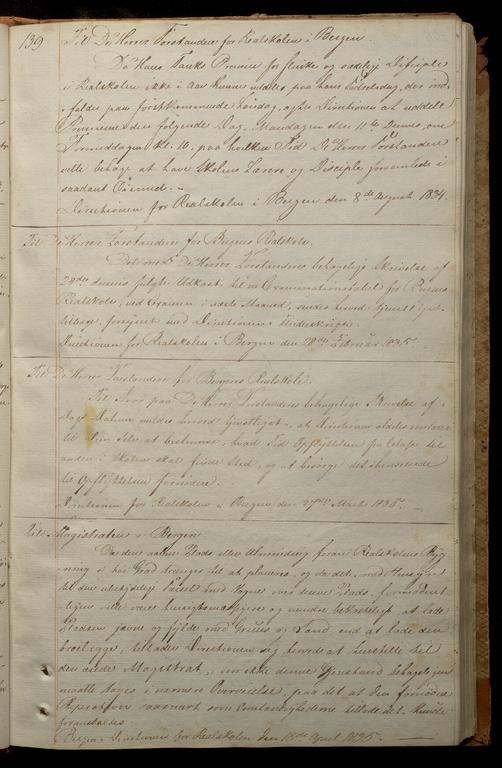 139
Til De Herrer Forstandere for Realskolen i Bergen.
Da Hans Tanks Præmier for flinke og sædelige Disciple
i Realskolen ikke i Aar kunne uddeles paa hans Fødselsdag, der ind-
falder paa førstkommende Søndag, agter Directionen at uddele
Præmierne den følgende Dag, Mandagen den 11te Dennes, om
Formiddagen Kl. 10, paa hvilken Tid De Herrer Forstandere
ville behage at have Skolens Lærere og Disciple forsamlede i
saadant Øiemed. -
Directionen for Realskolen i Bergen den 8de August 1834.
Til De Herrer Forstandere for Bergens Realskole.
Det med De Herrer Forstanderes behagelige Skrivelse af
28de dennes fulgte Udkast til en Examinationstabel for Bergens
Realskole, ved Examen i næste Maaned, sendes herved tjenstligst
tilbage, forsynet med Directionens Underskrift.
Directionen for Realskolen i Bergen den 28de Februar 1835.
Til De Herrer Forstandere for Bergens Realskole.
Til Svar paa De Herrer Forstanderes behagelige Skrivelse af
Dags Datum meldes herved tjenstligst, at Directionen aldeles overlader
til dem selv at bestemme, hvad Tid Opflyttelsen fra Classe til
anden i Skolen skal finde Sted, og at besørge det
til Opflyttelsen fornødne.
Directionen for Realskolen i Bergen den 27de Marts 1835.
Til Magistraten i Bergen
Da den aabne Plads eller Almending foran Realskolens Byg-
ning i høi Grad trænger til at planeres, og da det, med Hensyn
til den ubetydelige Færsel med Vogne over denne Plads, formodent-
ligen ville være hensigtsmæssigere og mindre bekosteligt at lade
Pladsen jevne og fylde med Gruus og Sand end at lade den
brolægge, tillader Directionen sig herved at indstille til
den ærede Magistrat, om ikke denne Gjenstand behageligen
maatte tages i nærmere Overveielse, paa det at den fornødne
Reparation saasnart som Omstændighederne tillade det, kunde
foranstaltes
Bergens Direction for Realskolen den 18de April 1835.